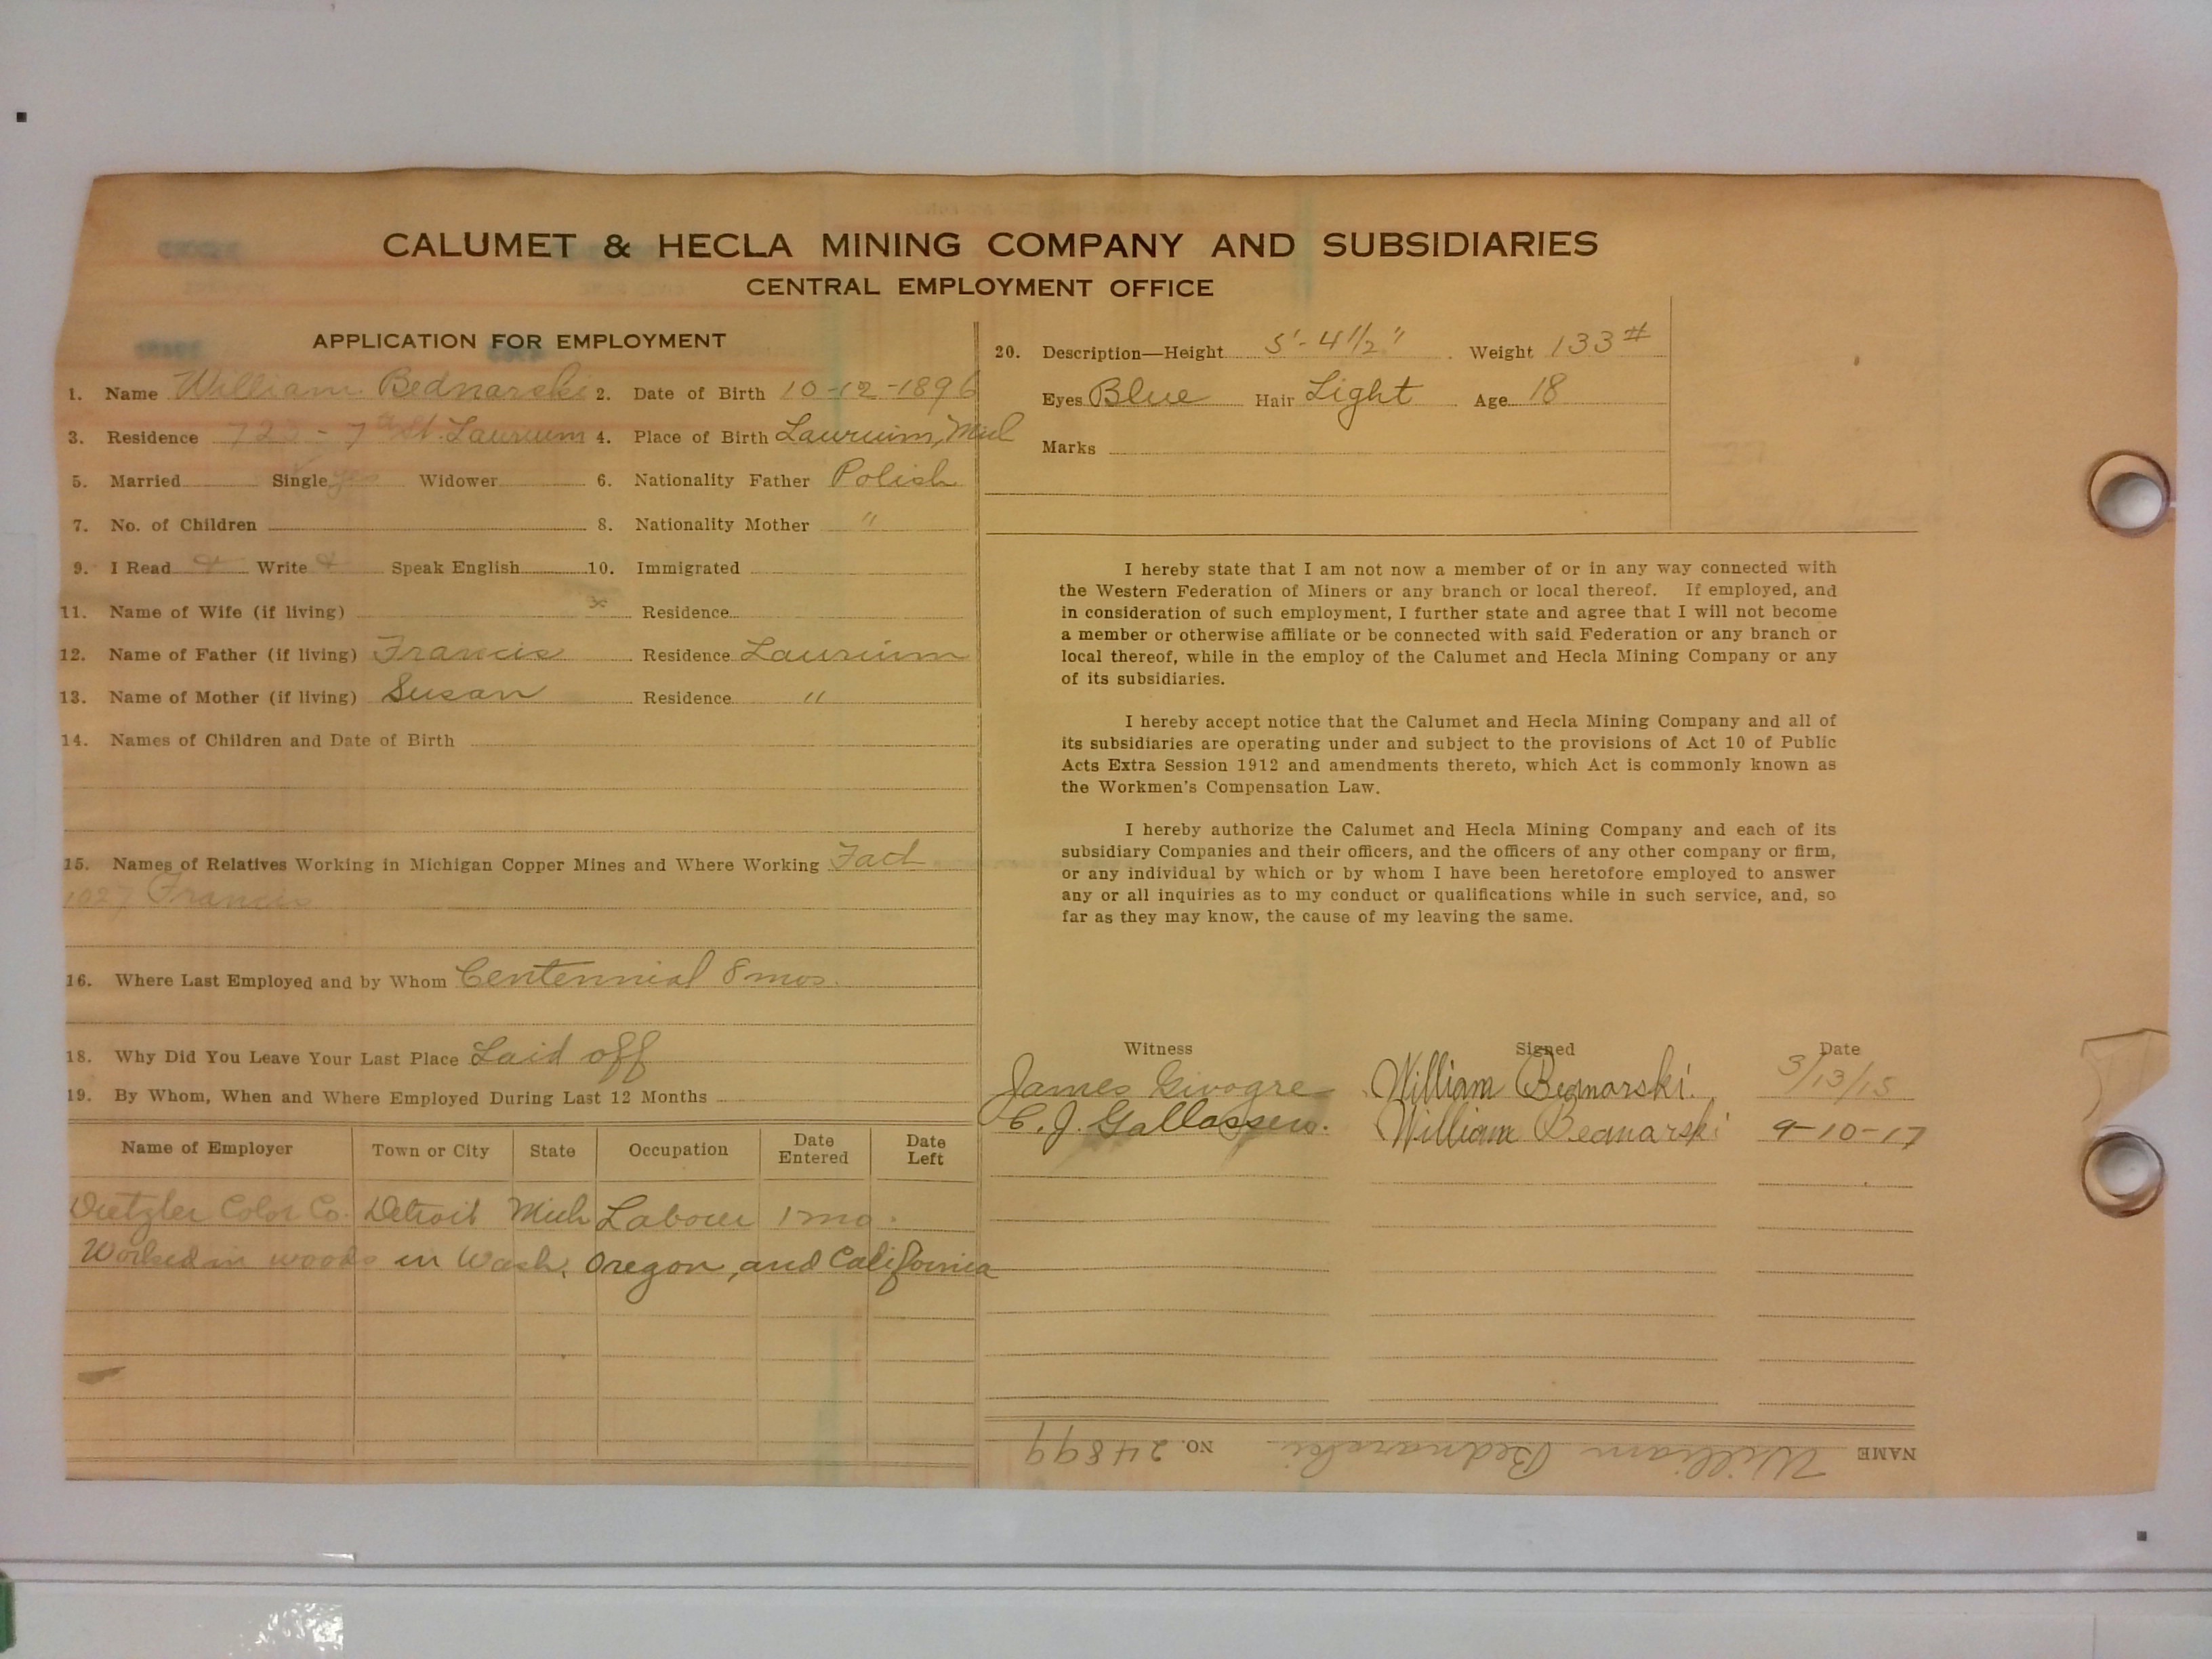 CALUMET & HECLA MINING COMPANY AND SUBSIDIARIES
CENTRAL EMPLOYMENT OFFICE
APPLICATION FOR EMPLOYMENT
1. Name William Bednarski 2. Date of Birth 10-12-1896
3. Residence - 7 St. Laurium 4. Place of Birth Laurium, Mich
5. Married Single yes Widower 6. Nationality Father Polish
7. No. of Children 8. Nationality Mother "
9. I Read Write Speak English 10. Immigrated
11. Name of Wife (if living) Residence
12. Name of Father (if living) Francis Residence Laurium
13. Name of Mother (if living) Susan Residence "
14. Names of Children and Date of Birth
15. Names of Relatives Working in Michigan Copper Mines and Where Working
1027 Francis
16. Where Last Employed and by Whom Centennial 8 mos.
18. Why Did You Leave Your Last Place Laid off
19. By Whom, When and Where Employed During Last 12 Months
Name of Employer Town or City State Occupation Date Entered Date Left
Ditzler Color Co. Detroit Mich Laborer 1 mo.
Worked in woods in Wash, Oregon, and California
20. Description—Height 5'-4 1/2" Weight 133 #
Eyes Blue Hair Light Age 18
Marks
I hereby state that I am not now a member of or in any way connected with
the Western Federation of Miners or any branch or local thereof. If employed, and
in consideration of such employment, I further state and agree that I will not become
a member or otherwise affiliate or be connected with said Federation or any branch or
local thereof, while in the employ of the Calumet and Hecla Mining Company or any
of its subsidiaries.
I hereby accept notice that the Calumet and Hecla Mining Company and all of
its subsidiaries are operating under and subject to the provisions of Act 10 of Public
Acts Extra Session 1912 and amendments thereto, which Act is commonly known as
the Workmen's Compensation Law.
I hereby authorize the Calumet and Hecla Mining Company and each of its
subsidiary Companies and their officers, and the officers of any other company or firm,
or any individual by which or by whom I have been heretofore employed to answer
any or all inquiries as to my conduct or qualifications while in such service, and, so
far as they may know, the cause of my leaving the same.
Witness Signed Date
James Givogre William Bednarski. 3/13/15
C. J. William Bednarski 9-10-17
NAME William Bednarski NO. 24899